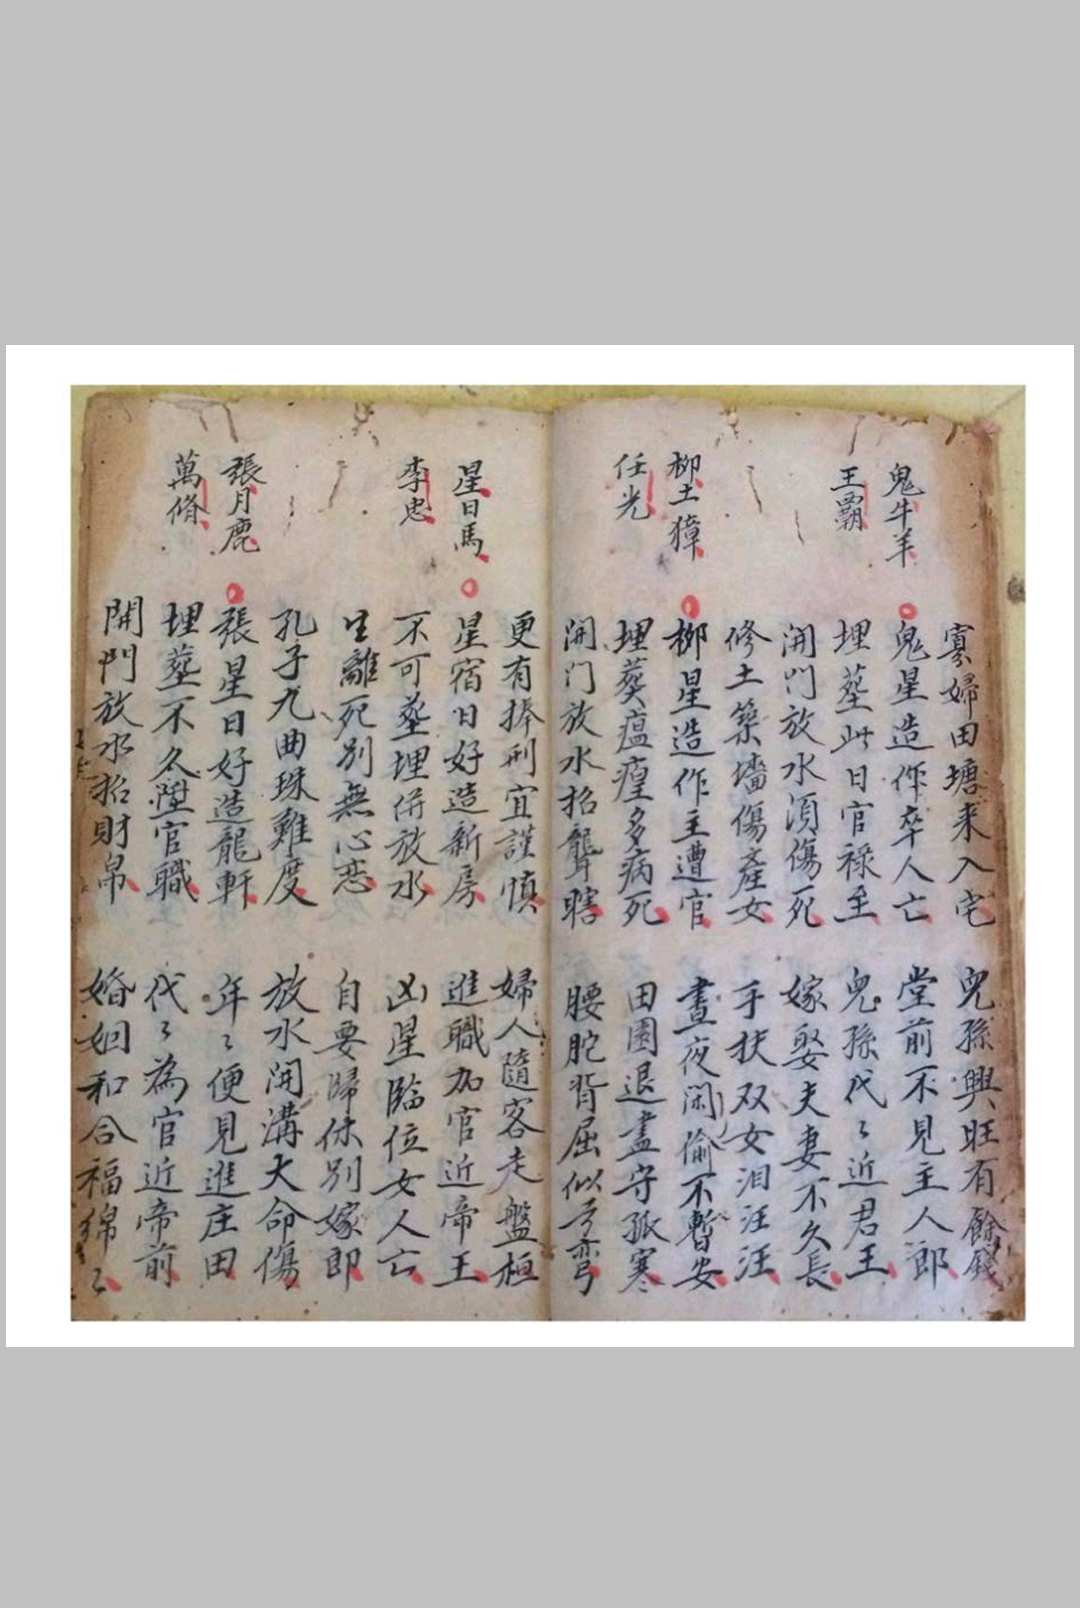 寡婦田塘来入宅 兒孫興旺有餘錢
鬼牛羊
鬼星造作卒人亡 堂前不見主人郎
王霸
埋塟此日官禄至 兒孫代〻近君王
開门放水須傷死 嫁娶夫妻不久長
修土築墻傷產女 手扶双女泪汪汪
柳土獐
柳星造作主遭官 晝夜闲偷不暫安
任光
埋葵瘟瘽多病死 田園退盡守孤寒
開门放水招聾瞎 腰駝背屈似弓弯
更有捧刑宜謹慎 婦人隨客走盤桓
星日馬
星宿日好造新房 進職加官近帝王
李忠
不可塟埋併放水 凶星臨位女人亡
生離死別無心恋 自要歸休別嫁郎
孔子九曲珠難度 放水開溝大命傷
張月鹿
張星日好造龍軒 年〻便見進庄田
萬脩
埋塟不久陞官職 代〻為官近帝前
開門放水招財帛 婚姻和合福綿〻